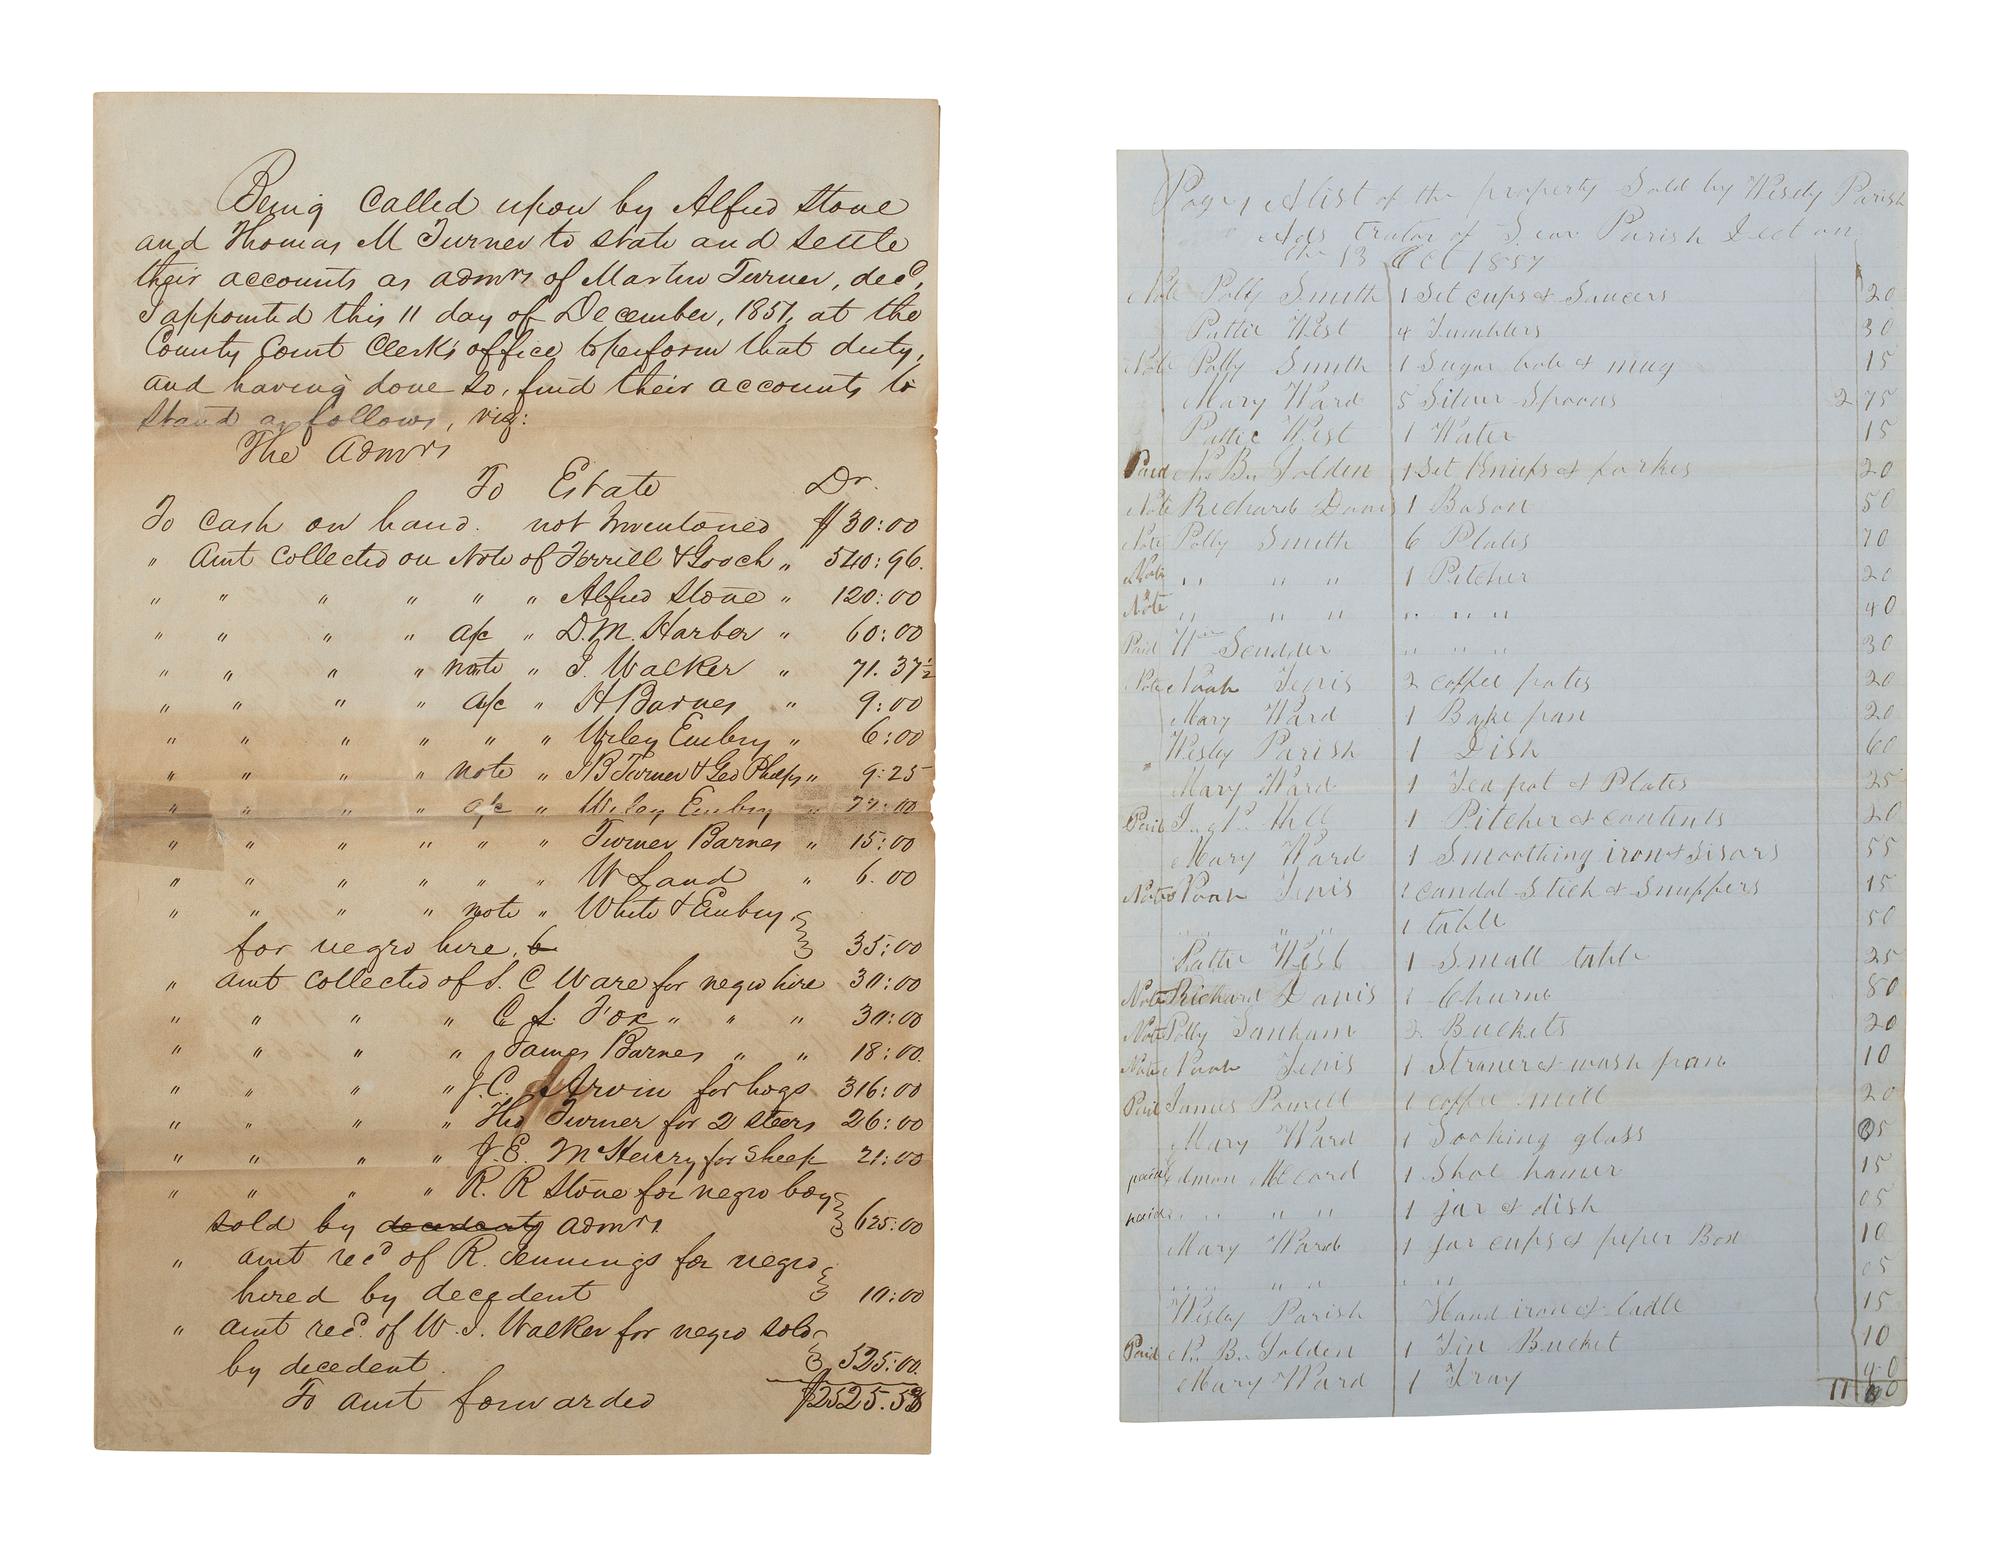 Being called upon by Alfred Stone
and Thomas M Turner to state and settle
their accounts as admrs of Martin Turner, decd,
I appointed this 11 day of December, 1857, at the
County Court Clerk's office to perform that duty,
and having done so, find their accounts to
stand as follows, viz:
The Admrs
To Estate Dr.
To cash on hand. not Inventoried $30:00
" Amt collected on Note of Terrill & Gooch " 540:96.
" " " " " " Alfred Stone " 120:00
" " " " a/c " D.M. Harber " 60:00
" " " " note " J. Walker " 71.37½
" " " " a/c " H Barnes " 9:00
" " " " " " Wiley Embry " 6:00
" " " " note " J B Turner & Geo Phelps " 9:25
" " " " a/c " Wiley Embry " 77:00
" " " " " " Turner Barnes " 15:00
" " " " " " W Land " 6.00
" " " " note " White & Embry
for negro hire, 35:00
" amt collected of S. C Ware for negro hire 30:00
" " " " C S. Fox " " " 30:00
" " " " James Barnes " " 18:00.
" " " " J. C. Arvin for hogs 316:00
" " " " Tho Turner for 2 steers 26:00
" " " " J. E. McHenry for Sheep 21:00
" " " " R. R Stone for negro boy
sold by decedents admrs 625:00
" amt recd of R. Jennings for negro
hired by decedent 10:00
" amt recd. of W. J. Walker for negro sold
by decedent. 525:00.
To amt forwarded $2525.58
Page 1 A list of the property Sold by Wesly Parish
Ads trator of Parish Decd on
the 13 Oct 1857
Note Polly Smith 1 Set cups & Saucers 20
Pattie West 4 Tumblers 30
Note Polly Smith 1 Sugar bole & mug 15
Mary Ward 5 Silver Spoons 2 75
Pattie West 1 Water 15
Paid N. B. Golden 1 Set Knifs & forkes 20
Note Richard Davis 1 Bason 50
Note Polly Smith 6 Plates 70
Note " " " 1 Pitcher 20
Note " " " " " " 40
Paid Wm Scudder " " " 30
Note Noah Tevis 2 coffee potes 20
Mary Ward 1 Bake pan 20
Wesley Parish 1 Dish 60
Mary Ward 1 Tea pot & Plates 25
Paid Hill 1 Pitcher & contents 20
Mary Ward 1 Smoothing iron & Sisors 55
Note Noah Tevis 1 candal Stick & Snuffers 15
" " " 1 table 50
Pattie West 1 Small table 25
Note Richard Davis 1 Churne 80
Note Polly Lanham 2 Buckets 20
Note Noah Tevis 1 Straner & wash pan 10
Paid James Powell 1 coffee mill 20
Mary Ward 1 Looking glass 05
paid Edmon McCord 1 Shoe hamer 15
paid " " " " 1 jar & dish 05
Mary Ward 1 jar cups & peper Box 10
" " " " " " 05
Wesley Parish Hand iron & Ladle 15
Paid N. B. Golden 1 Tin Bucket 10
Mary Ward 1 Tray 40
11